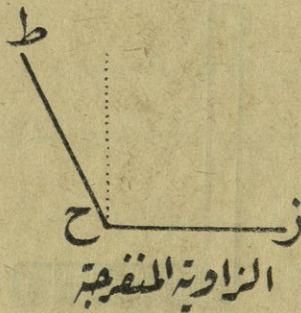 ط
ح ز
الزاوية المنفرجة